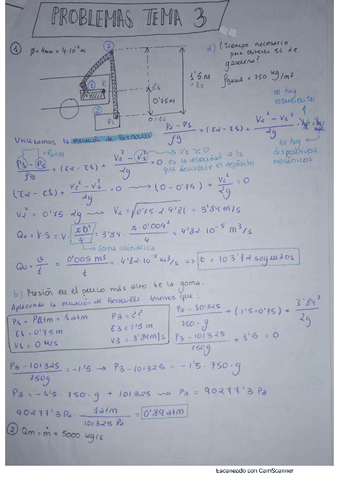 PROBLEMAS TEMA 3
① φ=4mm = 4·10⁻³m
a) ¿Tiempo necesario
para obtener 5L de
gasolina?
ρgasol = 750 kg/m³
1'5m
0'75m
no hay
rotamientos
no hay
dispositivos
mecánicos
Utilizamos la ecuación de Bernoulli
P2 - P3 / ρg + (z2 - z3) + V2² - V3² / 2g
V3 ≈ 0
es la velocidad a la
que desciende el depósito
(z2 - z3) + V2² - V3² / 2g = 0 → (0 - 0'75) + V2² / 2g = 0
V2² = 0'75 · 2g → V2 = √0'75 · 2 · 9'81 = 3'84 m/s
Qv = V·S = V · πD² / 4 = 3'84 · π · 0'004² / 4 = 4'82·10⁻⁵ m³/s
Forma cilíndrica
Qv = V / t = 0'005 m³ / t = 4'82·10⁻⁵ m³/s ⇒ t = 103'72 segundos
b) Presión en el punto más alto de la goma.
Aplicando la ecuación de Bernoulli tenemos que
Ps = Patm = 1atm P3 = ¿?
zs = 0'75m z3 = 1'5m
vs = 0 m/s v3 = 3'84 m/s
P3 - 101325 / 750·g + (1'5 - 0'75) + 3'84² / 2g
P3 - 101325 / 750g + 1'5 = 0
P3 - 101325 / 750g = -1'5 → P3 - 101325 = -1'5 · 750·g
P3 = -1'5 · 750·g + 101325 → P3 = 90277'3 Pa
90277'3 Pa · 1atm / 101325 Pa = 0'89 atm
② Qm = ṁ = 5000 kg/s
Escaneado con CamScanner